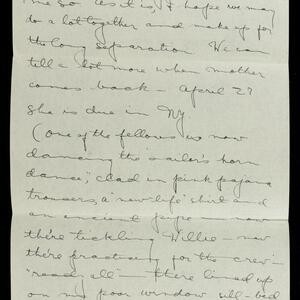 me so. As it is, I hope we may
do a lot together and make up for
the long separation. We can
tell a lot more when mother
comes back – April 27
she is due in NY.
(One of the fellows is now
dancing the "sailor's horn
dance," clad in pink pajama
trousers, a "new-life" shirt and
an ancient – now
they're tickling Willie – now
they're practising for the crew –
"ready all" – they're lined up
on my poor window – bed